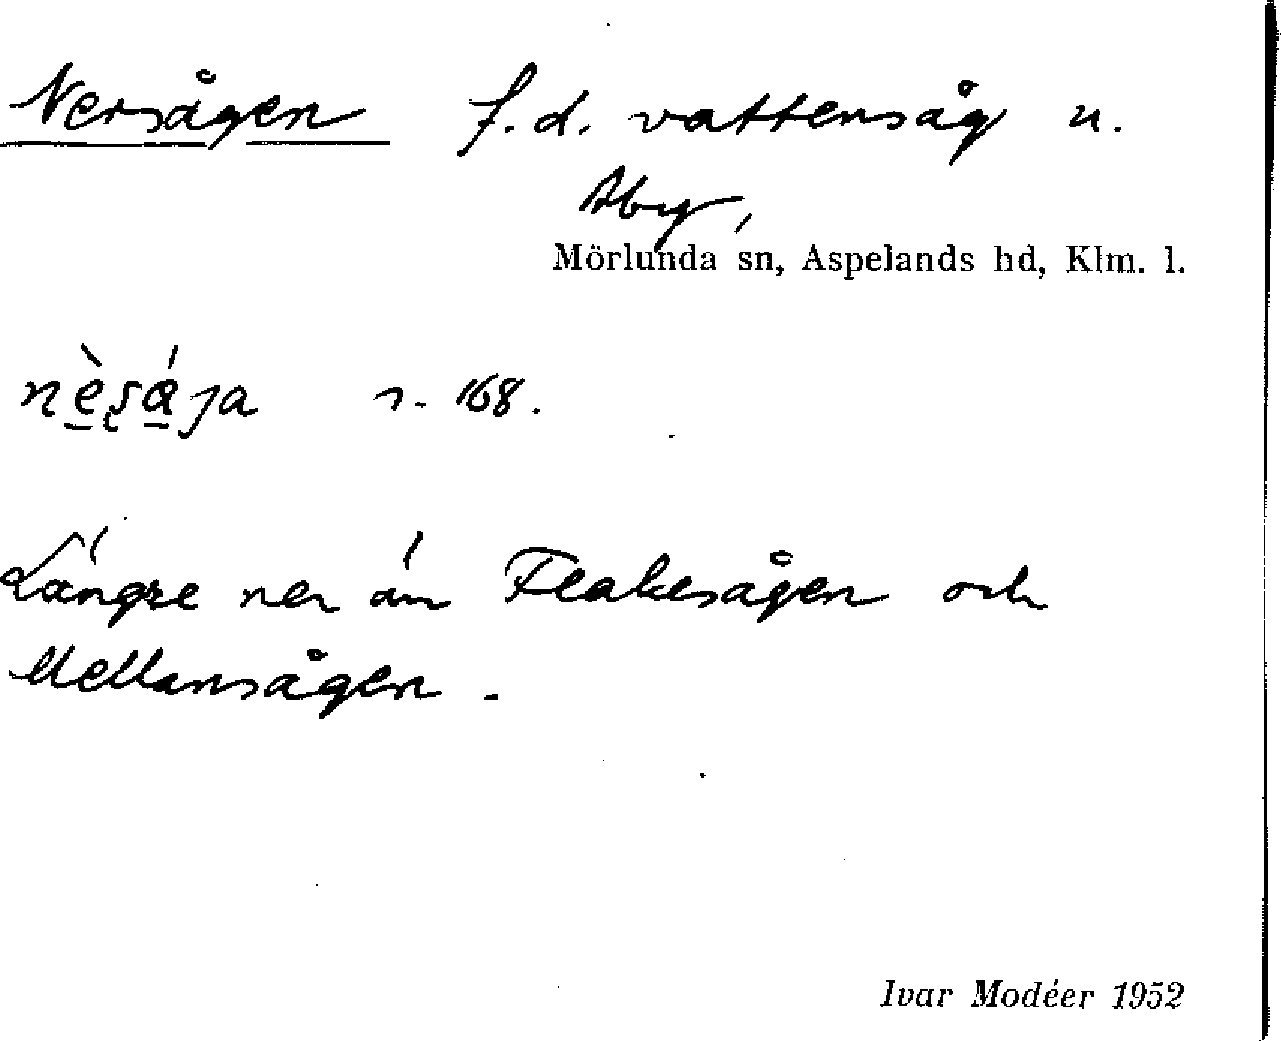 Nersågen f.d. vattensåg u.
Åby,
Mörlunda sn, Aspelands hd, Klm. l.
nè̱ʂá̱ja s. 168.
Längre ner än Flakesågen och
Mellansågen.
Ivar Modéer 1952